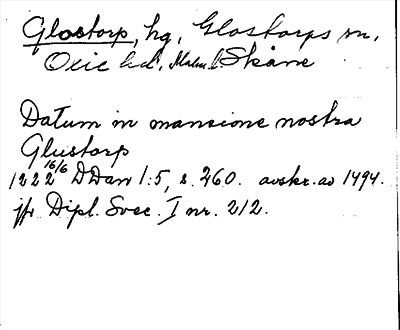 Glostorp, hg, Glostorps sn,
Oxie hd, Malm. l. Skåne
Datum in mansione nostra
Glustorp
1222 16/6 DDan 1:5, s. 260. avskr. av 1494.
jfr Dipl. Svec. I nr. 212.